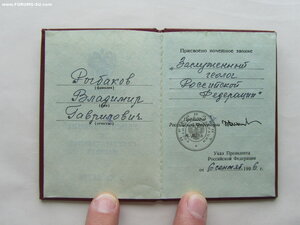 FORUM-SU.com
Рыбаков
(фамилия)
Владимир
(имя)
Гаврилович
(отчество)
Присвоено почетное звание
"Заслуженный
геолог
Российской
Федерации"
Президент
Российской Федерации
Указ Президента
Российской Федерации
от
199 г.